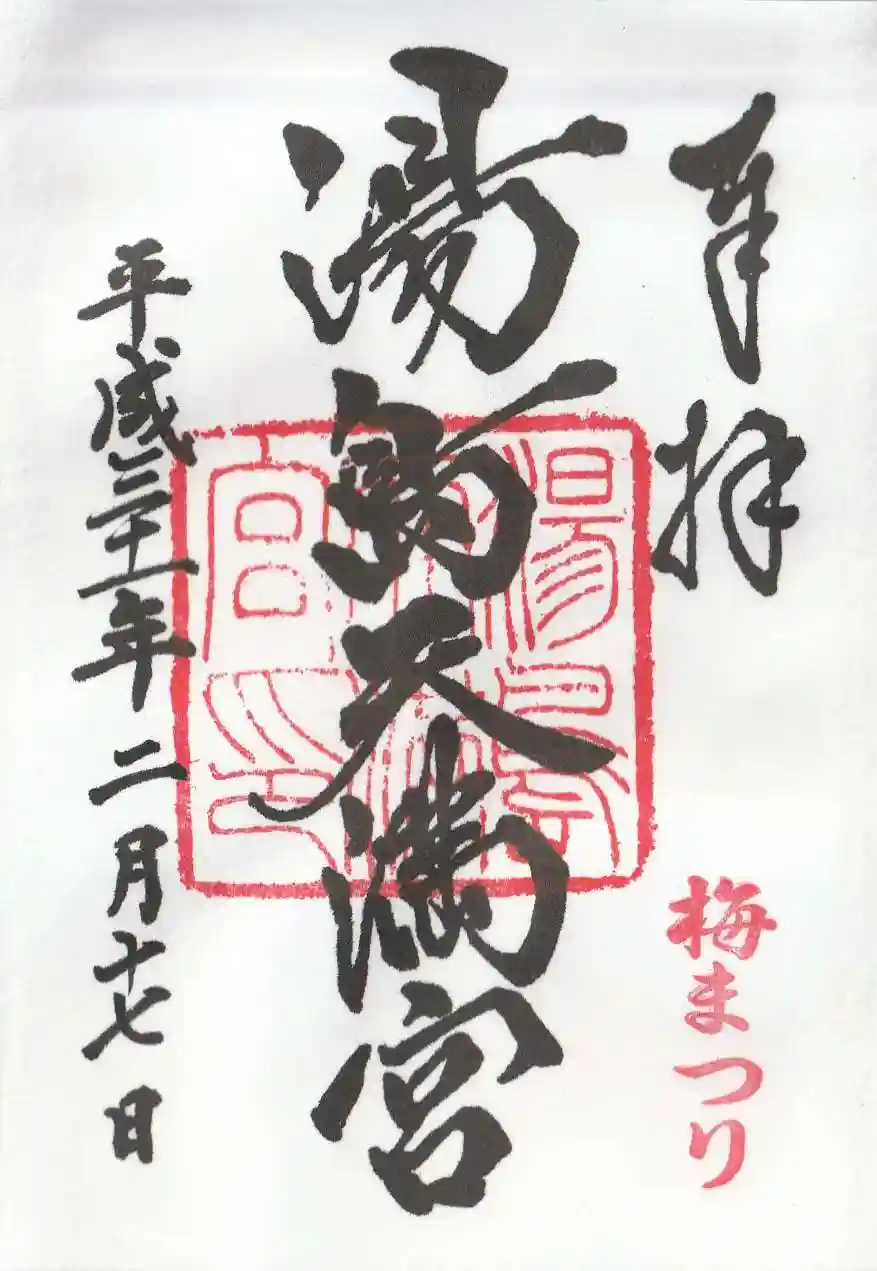 奉拝
梅まつり
湯島天満宮
湯島天神宮印
平成三十一年二月十七日